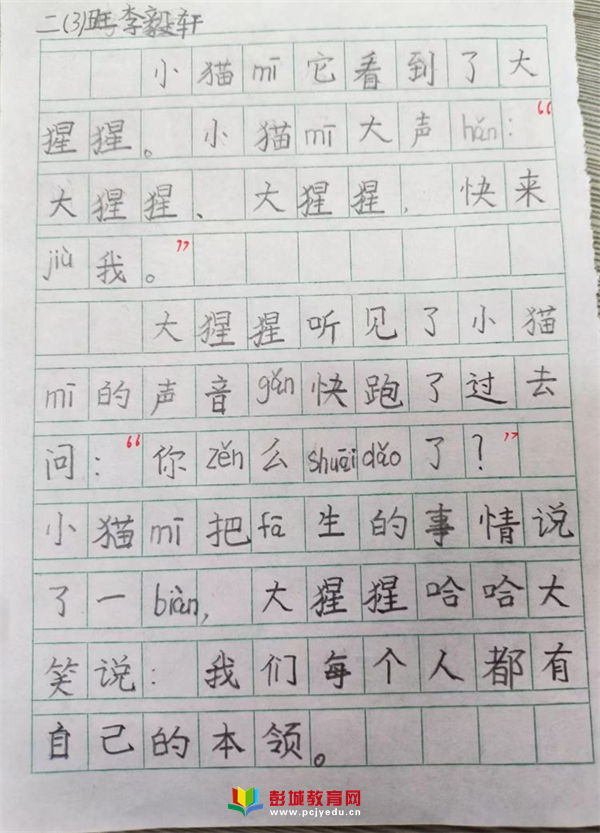 二(3)班 李毅轩
小猫mī它看到了大
猩猩。小猫mī大声hǎn：“
大猩猩、大猩猩，快来
jiù我。”
大猩猩听见了小猫
mī的声音gǎn快跑了过去
问：“你zěn么shuāidǎo了？”
小猫mī把fā生的事情说
了一biàn，大猩猩哈哈大
笑说：我们每个人都有
自己的本领。
彭城教育网
www.pcjyedu.cn